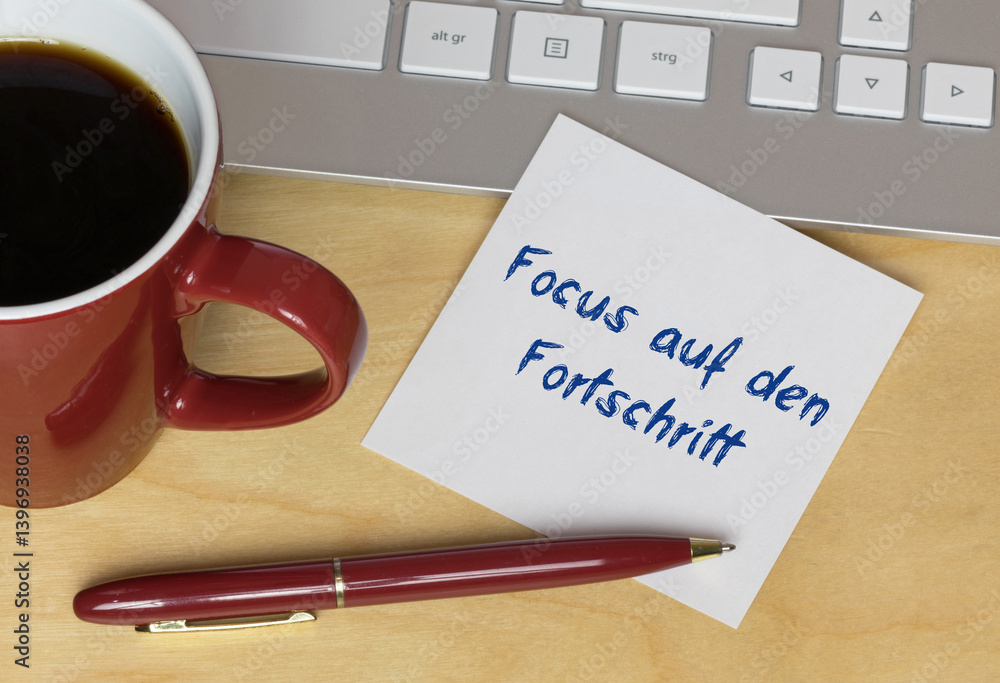 alt gr
strg
Focus auf den
Fortschritt
Adobe Stock | #1396938038